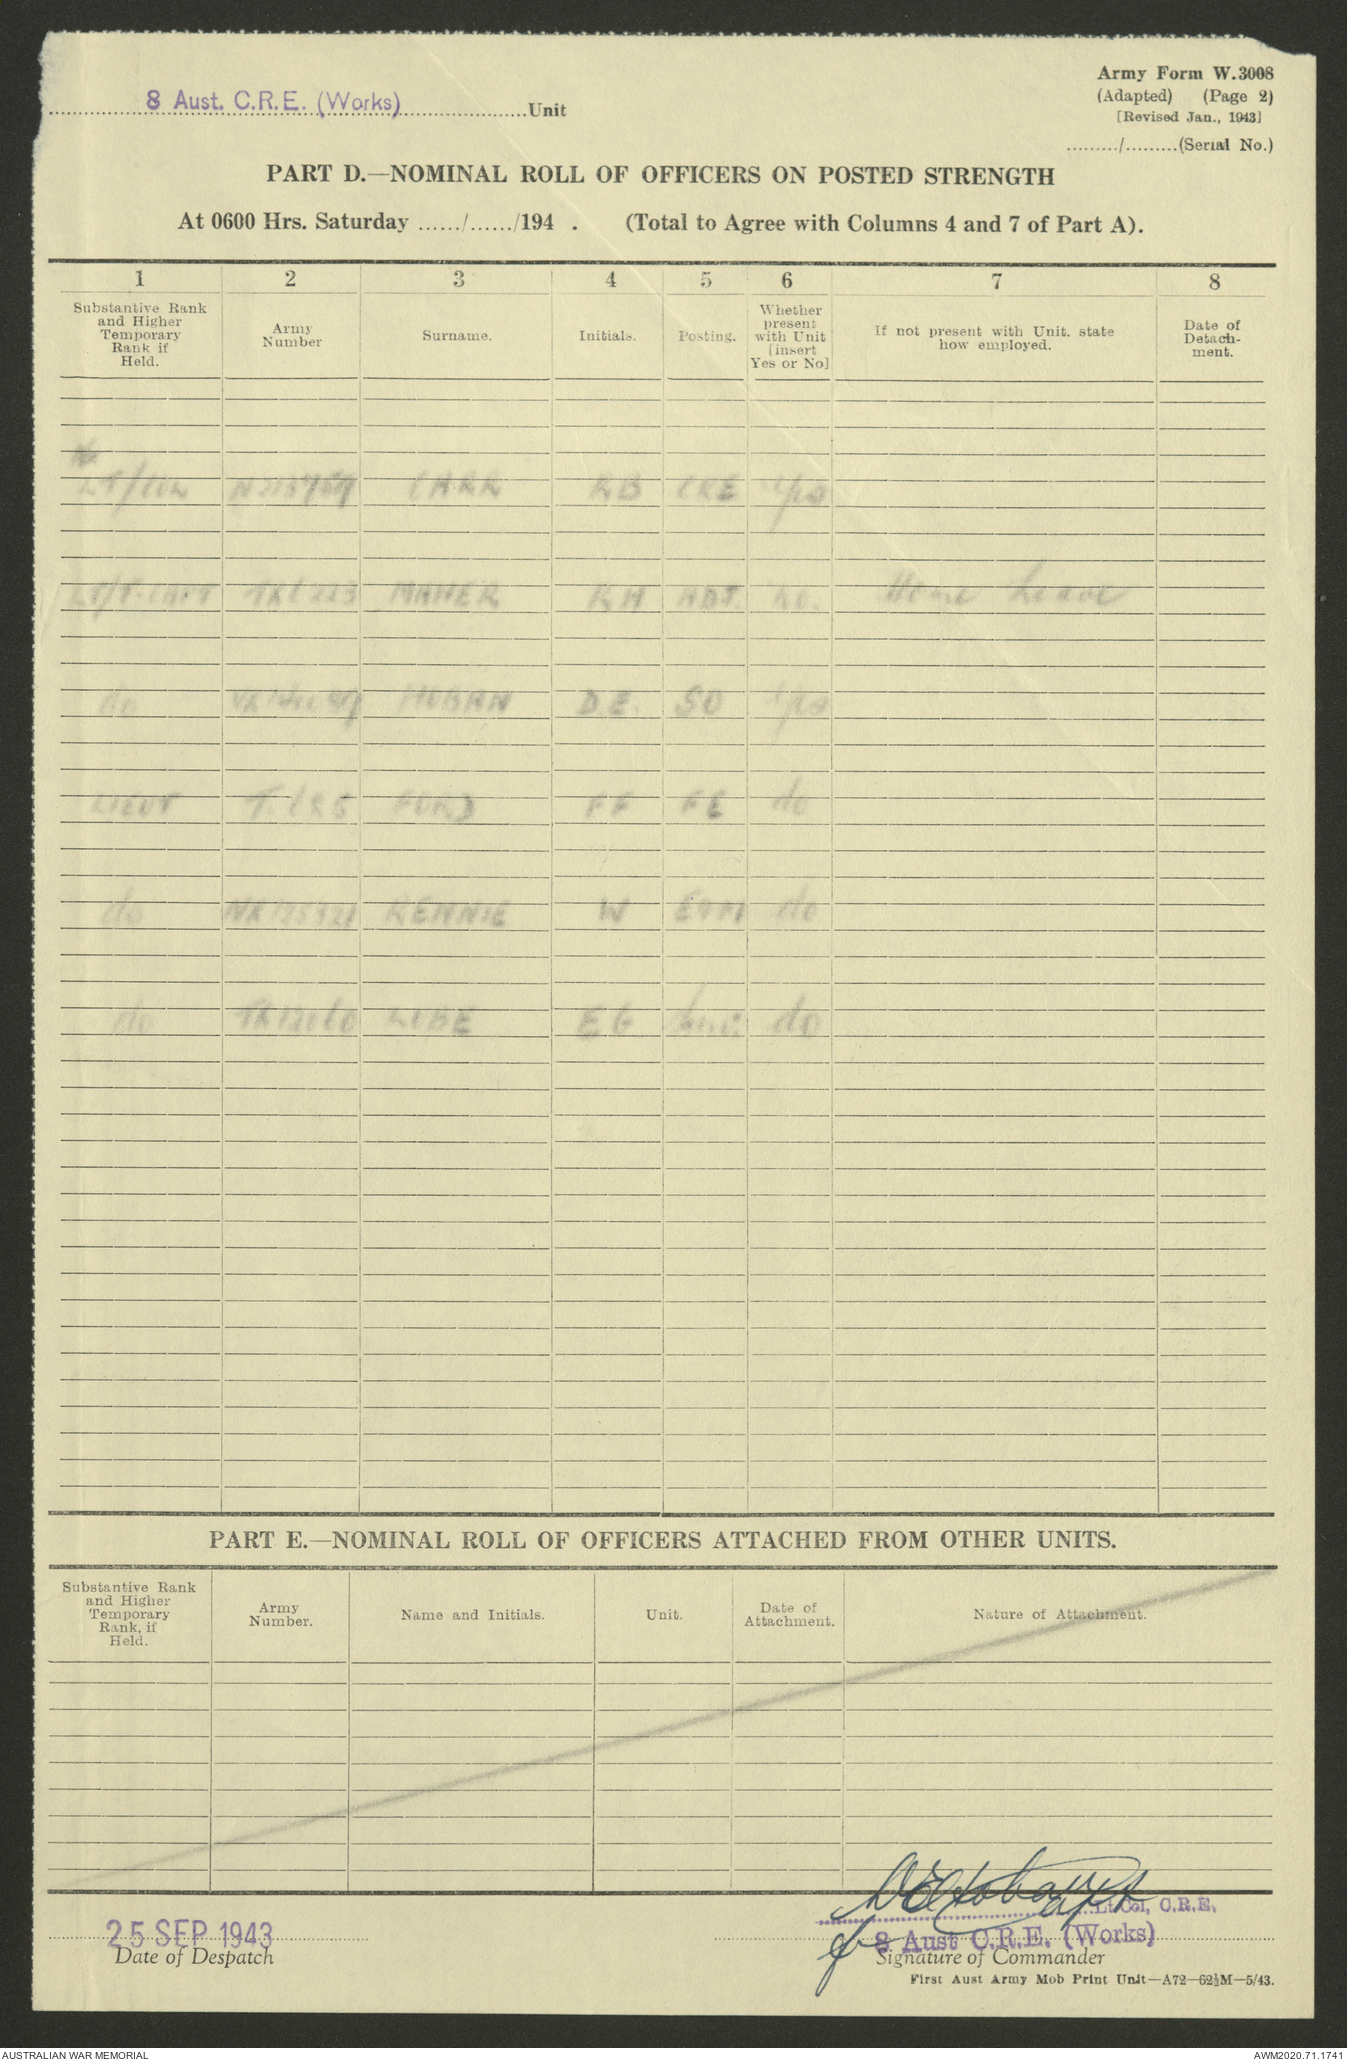 8 Aust. C.R.E. (Works) Unit
Army Form W.3008
(Adapted) (Page 2)
[Revised Jan., 1943]
........./.........(Serial No.)
PART D.—NOMINAL ROLL OF OFFICERS ON POSTED STRENGTH
At 0600 Hrs. Saturday ....../....../194 . (Total to Agree with Columns 4 and 7 of Part A).
1 2 3 4 5 6 7 8
Substantive Rank and Higher Temporary Rank if Held.
Army Number
Surname.
Initials.
Posting.
Whether present with Unit [insert Yes or No]
If not present with Unit. state how employed.
Date of Detach-ment.
LT/COL CARR RB CRE Yes
LT/T.CAPT MAHER RH ADJ. No. Home Leave
do D.E. SO Yes
LIEUT FORD FF FE do
do NX125321 RENNIE W EQM do
do EG do
PART E.—NOMINAL ROLL OF OFFICERS ATTACHED FROM OTHER UNITS.
Substantive Rank and Higher Temporary Rank, if Held.
Army Number.
Name and Initials.
Unit.
Date of Attachment.
Nature of Attachment.
Lt. Col, C.R.E.
25 SEP 1943
8 Aust C.R.E. (Works)
Date of Despatch
Signature of Commander
First Aust Army Mob Print Unit—A72—62½M—5/43.
AUSTRALIAN WAR MEMORIAL
AWM2020.71.1741